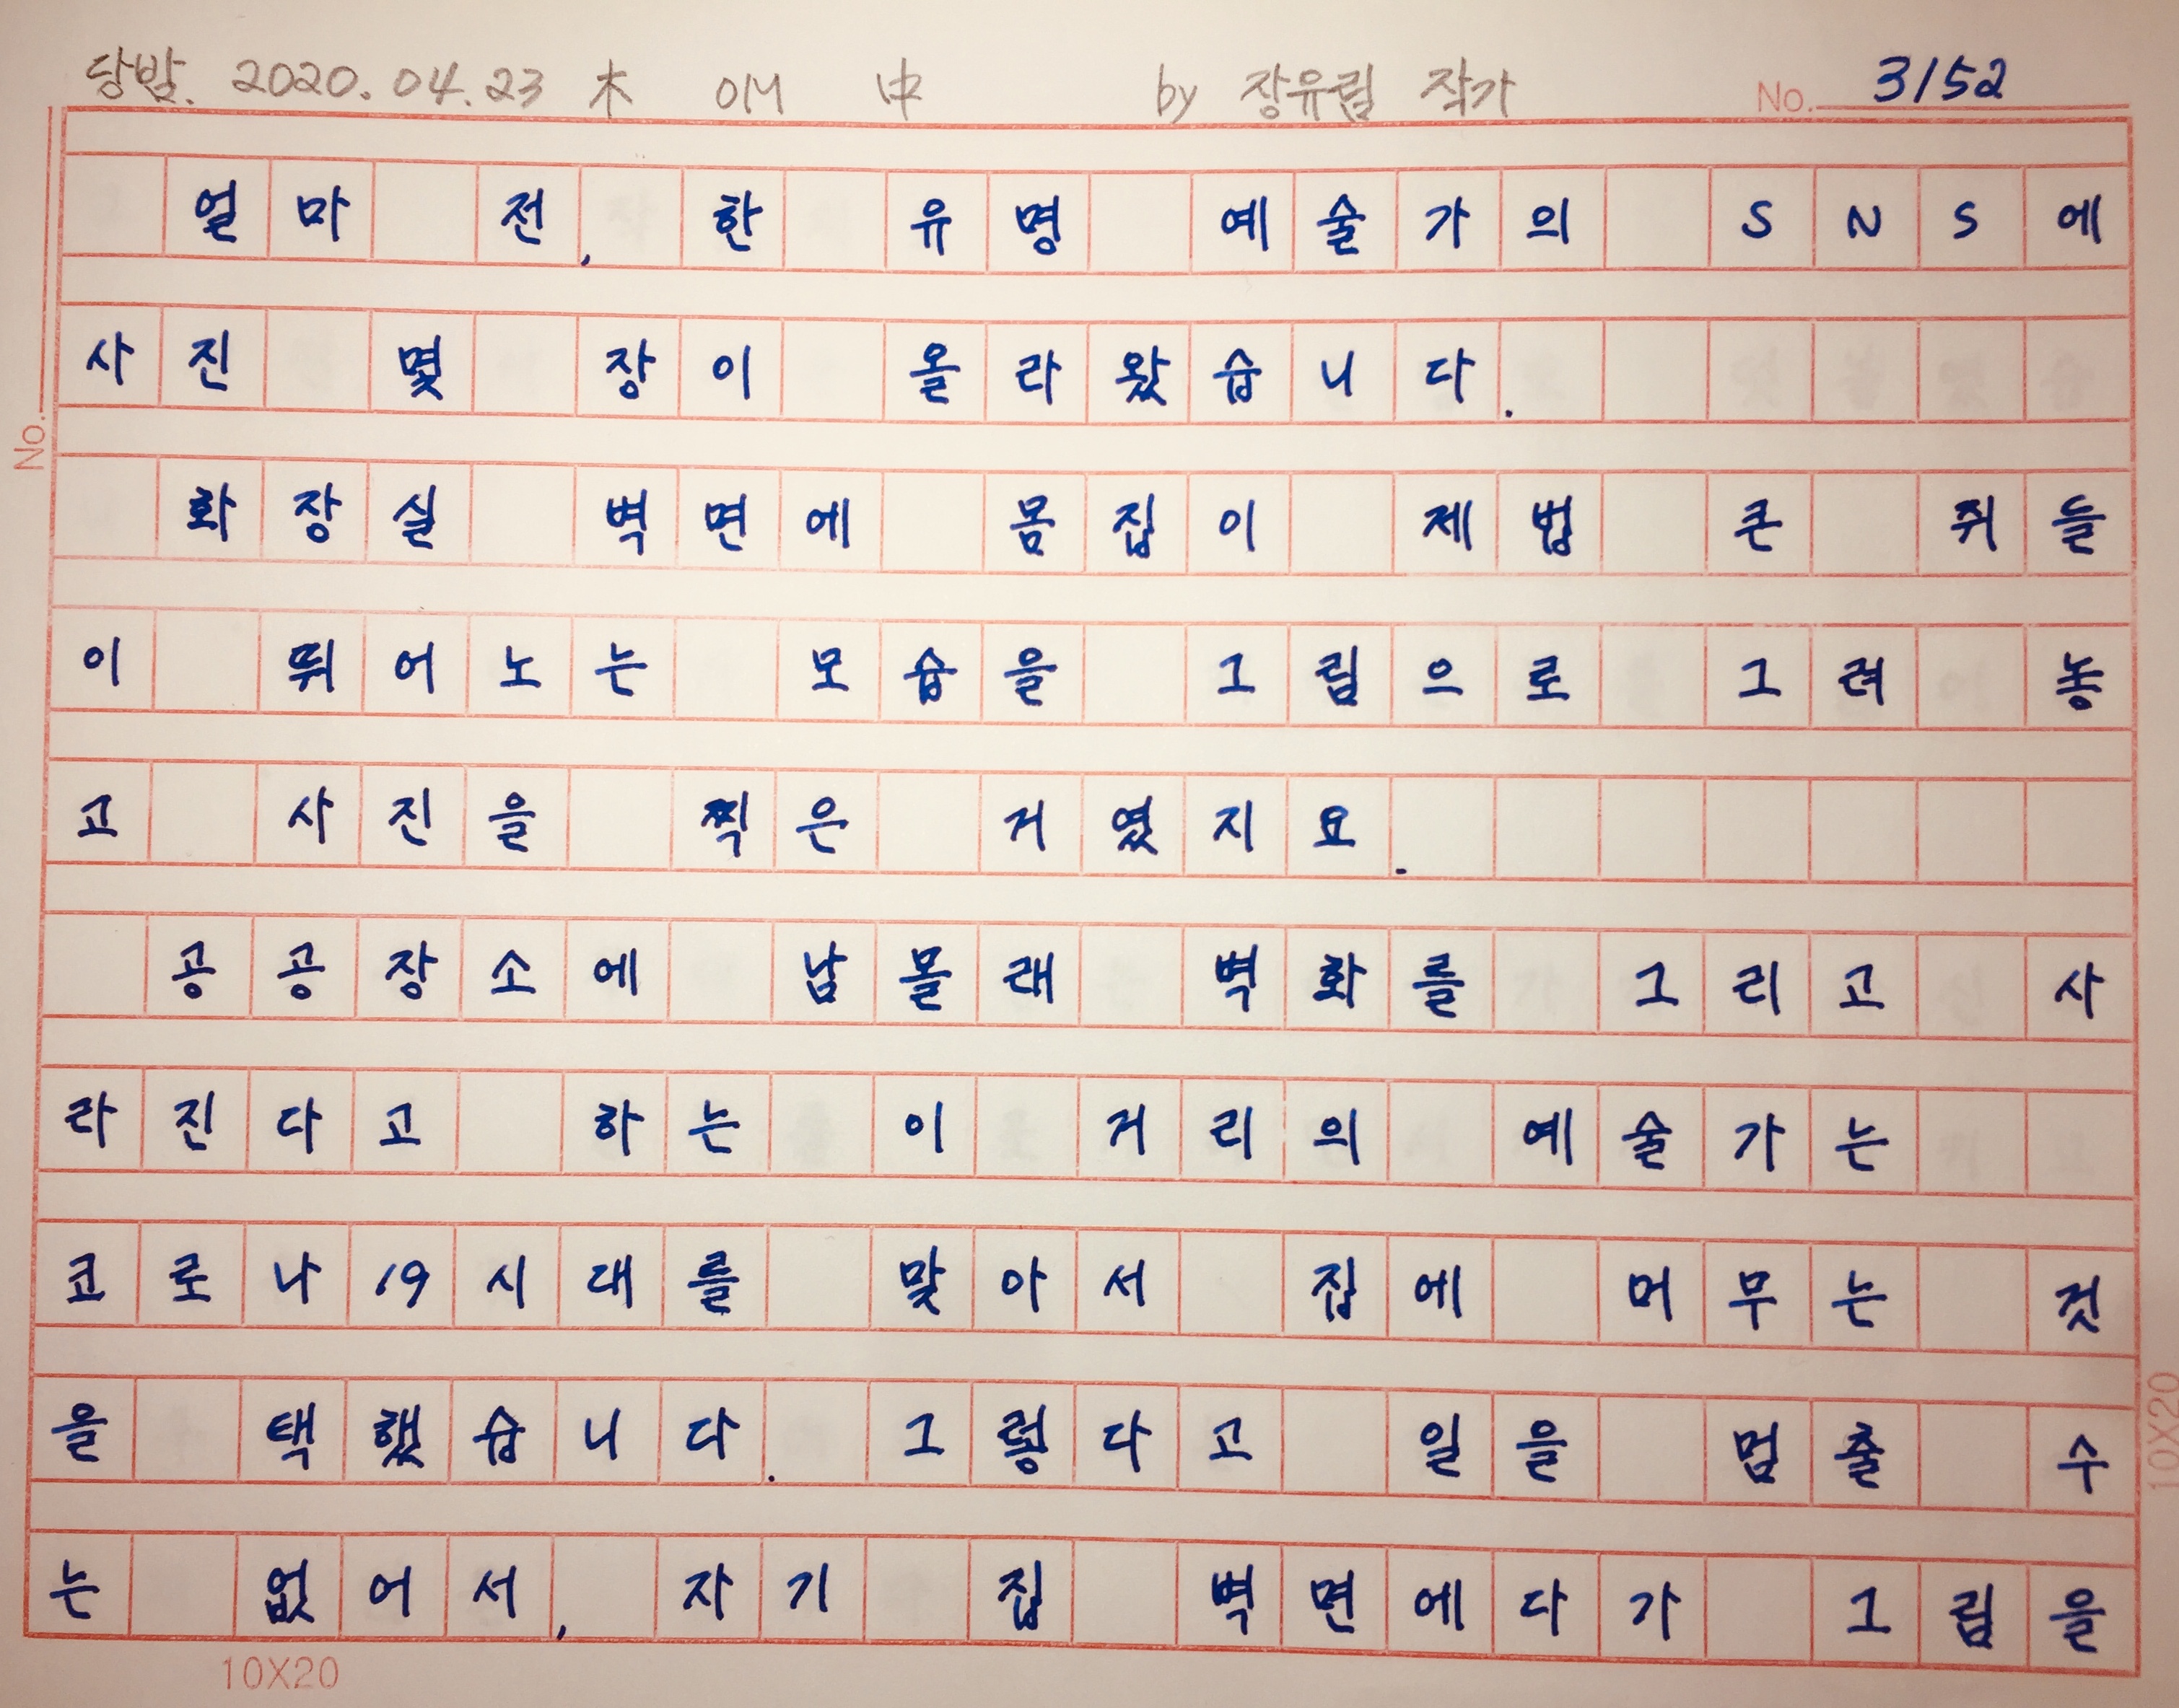 당밤. 2020.04.23 木 OM 中 by 장유림 작가
No. 3152
얼마 전, 한 유명 예술가의 SNS에
사진 몇 장이 올라왔습니다.
화장실 벽면에 몸집이 제법 큰 쥐들
이 뛰어노는 모습을 그림으로 그려 놓
고 사진을 찍은 거였지요.
공공장소에 남몰래 벽화를 그리고 사
라진다고 하는 이 거리의 예술가는
코로나19시대를 맞아서 집에 머무는 것
을 택했습니다. 그렇다고 일을 멈출 수
는 없어서, 자기 집 벽면에다가 그림을
No.
10X20
10X20